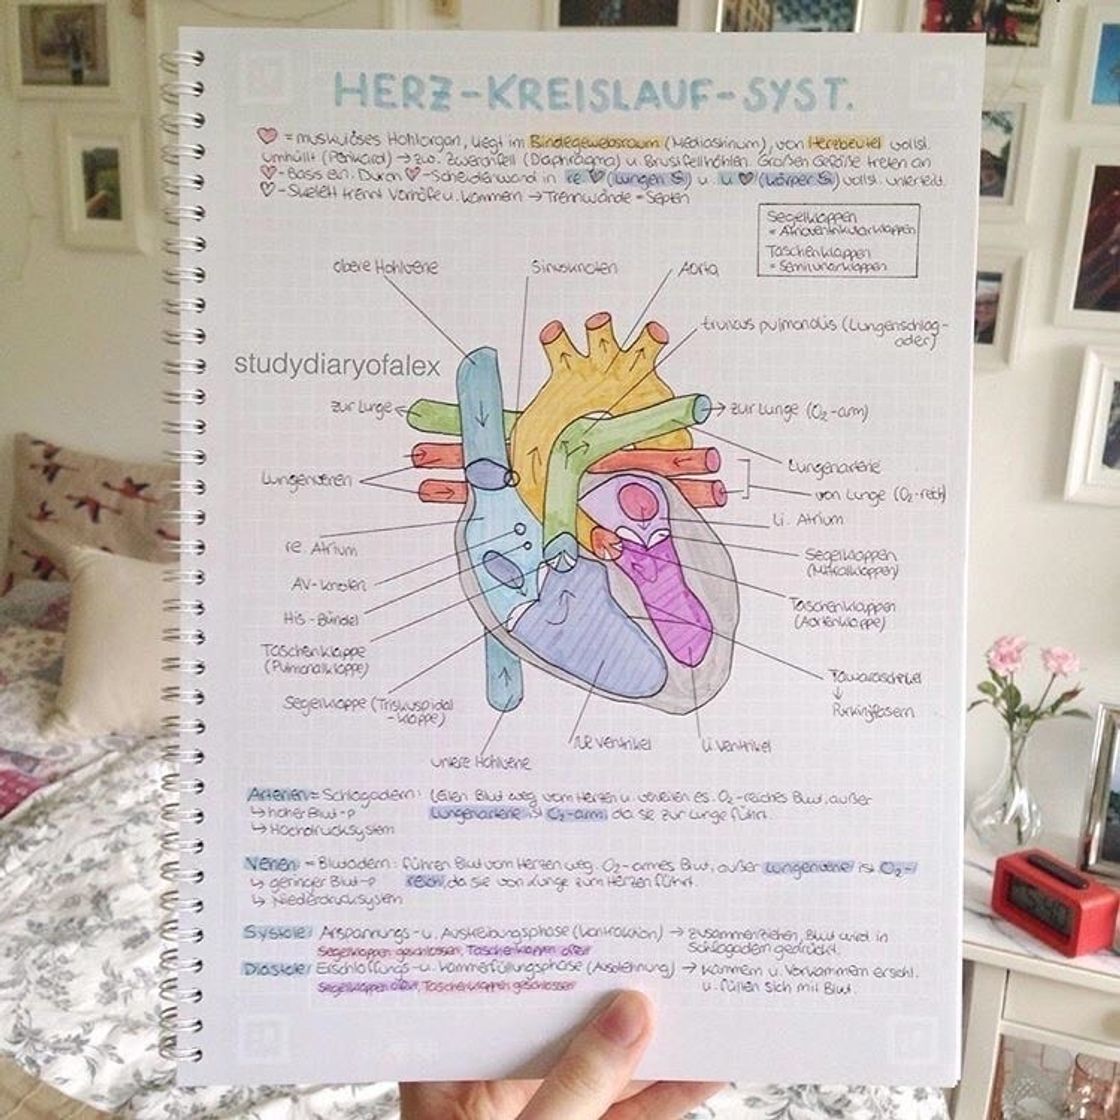 HERZ-KREISLAUF-SYST.
= muskulöses Hohlorgan, liegt im Bindegewebsraum (Mediastinum), von Herzbeutel vollst.
umhüllt (Perikard) → zw. Zwerchfell (Diaphragma) u. Brustfellhöhlen. Großen Gefäße treten an
♡-Basis ein. Durch ♡-Scheidewand in re. ♡ (Lungen) u. li. ♡ (Körper) vollst. unterteilt.
♡-Skelett trennt Vorhöfe u. Kammern → Trennwände = Septen
Segelklappen
= Atrioventrikularklappen
Taschenklappen
= Semilunarklappen
obere Hohlvene
Sinusknoten
Aorta
truncus pulmonalis (Lungenschlag-
ader)
studydiaryofalex
zur Lunge
zur Lunge (O₂-arm)
Lungenarterie
Lungenvenen
von Lunge (O₂-reich)
li. Atrium
re. Atrium
Segelklappen
(Mitralklappen)
AV-Knoten
His-Bündel
Taschenklappen
(Aortenklappe)
Taschenklappe
(Pulmonalklappe)
Tawaraschenkel
↓
Purkinjefasern
Segelklappe (Trikuspidal
-klappe)
re Ventrikel
li. Ventrikel
untere Hohlvene
Arterien = Schlagadern: Leiten Blut weg vom Herzen u. verteilen es. O₂-reiches Blut, außer
↳ hoher Blut-p Lungenarterie ist O₂-arm, da sie zur Lunge führt.
↳ Hochdrucksystem
Venen = Blutadern: führen Blut vom Herzen weg. O₂-armes Blut, außer Lungenvene ist O₂-
↳ geringer Blut-p reich, da sie von Lunge zum Herzen führt.
↳ Niederdrucksystem
Systole: Anspannungs- u. Austreibungsphase (Kontraktion) → zusammenziehen, Blut wird in
Segelklappen geschlossen, Taschenklappen offen Schlagadern gedrückt.
Diastole: Erschlaffungs- u. Kammerfüllungsphase (Ausdehnung) → Kammern u. Vorkammern erschl.
Segelklappen offen, Taschenklappen geschlossen u. füllen sich mit Blut.